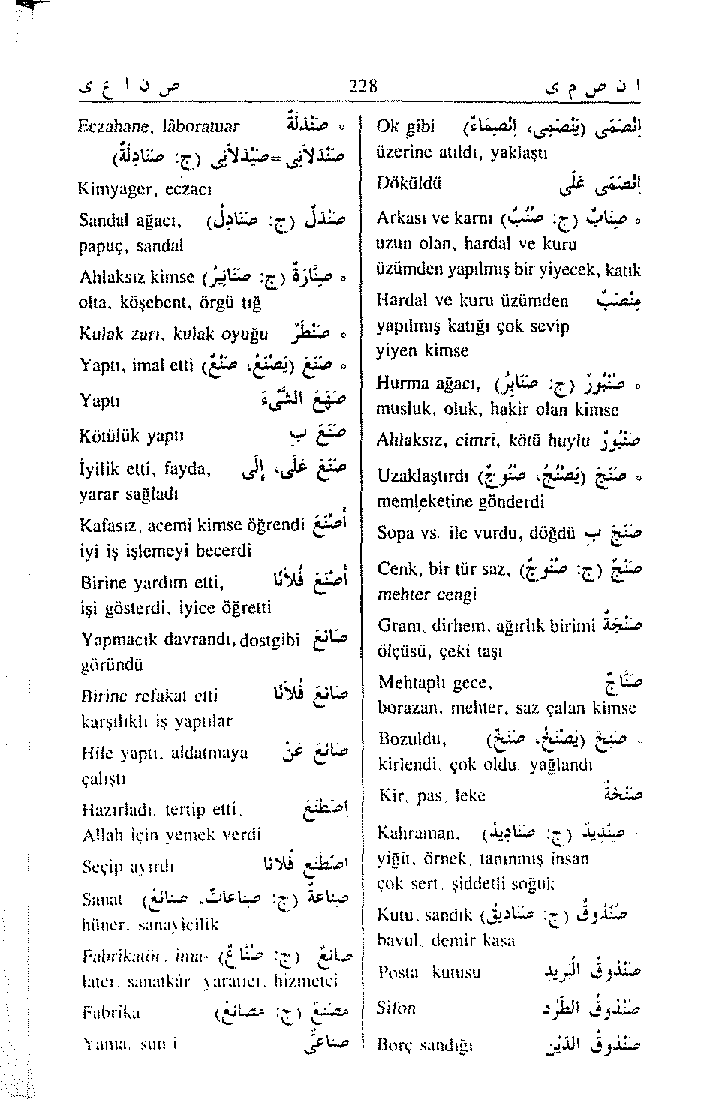 ا ن ص م ى 228 ص ن ا ع ى
اِنْصَمَى (يَنْصَمِي، اِنْصِمَاءً) Ok gibi
üzerine atıldı, yaklaştı
اِنْصَمَى عَلَى Döküldü
◦ صِنَابٌ (ج: صُنُبٌ) Arkası ve karnı
uzun olan, hardal ve kuru
üzümden yapılmış bir yiyecek, katık
مِصْنَبٌ Hardal ve kuru üzümden
yapılmış katığı çok sevip
yiyen kimse
◦ صُنْبُورٌ (ج: صَنَابِرُ) Hurma ağacı,
musluk, oluk, hakir olan kimse
صُنْبُورٌ Ahlaksız, cimri, kötü huylu
◦ صَنَجَ (يَصْنُجُ، صُنُوجٌ) Uzaklaştırdı
memleketine gönderdi
صَنَجَ بِ Sopa vs. ile vurdu, döğdü
صَنْجٌ (ج: صُنُوجٌ) Cenk, bir tür saz,
mehter cengi
صَنْجَةٌ Gram, dirhem, ağırlık birimi
ölçüsü, çeki taşı
صَنَّاجٌ Mehtaplı gece,
borazan, mehter, saz çalan kimse
◦ صَنِخَ (يَصْنَخُ، صَنَخٌ) Bozuldu,
kirlendi, çok oldu, yağlandı
صَنَخَةٌ Kir, pas, leke
◦ صِنْدِيدٌ (ج: صَنَادِيدُ) Kahraman,
yiğit, örnek, tanınmış insan
çok sert, şiddetli soğuk
صُنْدُوقٌ (ج: صَنَادِيقُ) Kutu, sandık
bavul, demir kasa
صُنْدُوقُ الْبَرِيدِ Posta kutusu
صُنْدُوقُ الطَّرْدِ Sifon
صُنْدُوقُ الدَّيْنِ Borç sandığı
◦ صَنْدَلَةٌ Eczahane, lâboratuar
صَنْدَلَانِيّ = صَيْدَلَانِيّ (ج: صَنَادِلَةٌ)
Kimyager, eczacı
صَنْدَلٌ (ج: صَنَادِلُ) Sandal ağacı,
papuç, sandal
◦ صِنَّارَةٌ (ج: صَنَانِيرُ) Ahlaksız kimse
olta, köşebent, örgü tığ
◦ صَنْطَرٌ Kulak zarı, kulak oyuğu
◦ صَنَعَ (يَصْنَعُ، صُنْعٌ) Yaptı, imal etti
صَنَعَ الشَّيْءَ Yaptı
صَنَعَ بِ Kötülük yaptı
صَنَعَ عَلَى، إِلَى İyilik etti, fayda,
yarar sağladı
أَصْنَعَ Kafasız, acemi kimse öğrendi
iyi iş işlemeyi becerdi
أَصْنَعَ فُلَانًا Birine yardım etti,
işi gösterdi, iyice öğretti
صَانَعَ Yapmacık davrandı, dost gibi
göründü
صَانَعَ فُلَانًا Birine refakat etti
karşılıklı iş yaptılar
صَانَعَ عَنْ Hile yaptı, aldatmaya
çalıştı
اِصْطَنَعَ Hazırladı, tertip etti,
Allah için yemek verdi
اِصْطَنَعَ فُلَانًا Seçip ayırdı
صِنَاعَةٌ (ج: صِنَاعَاتٌ، صَنَائِعُ) Sanat
hüner, sanayicilik
صَانِعٌ (ج: صُنَّاعٌ) Fabrikatör, ima-
latçı, sanatkâr yaratıcı, hizmetçi
مَصْنَعٌ (ج: مَصَانِعُ) Fabrika
صِنَاعِيٌّ Yama, sun'i